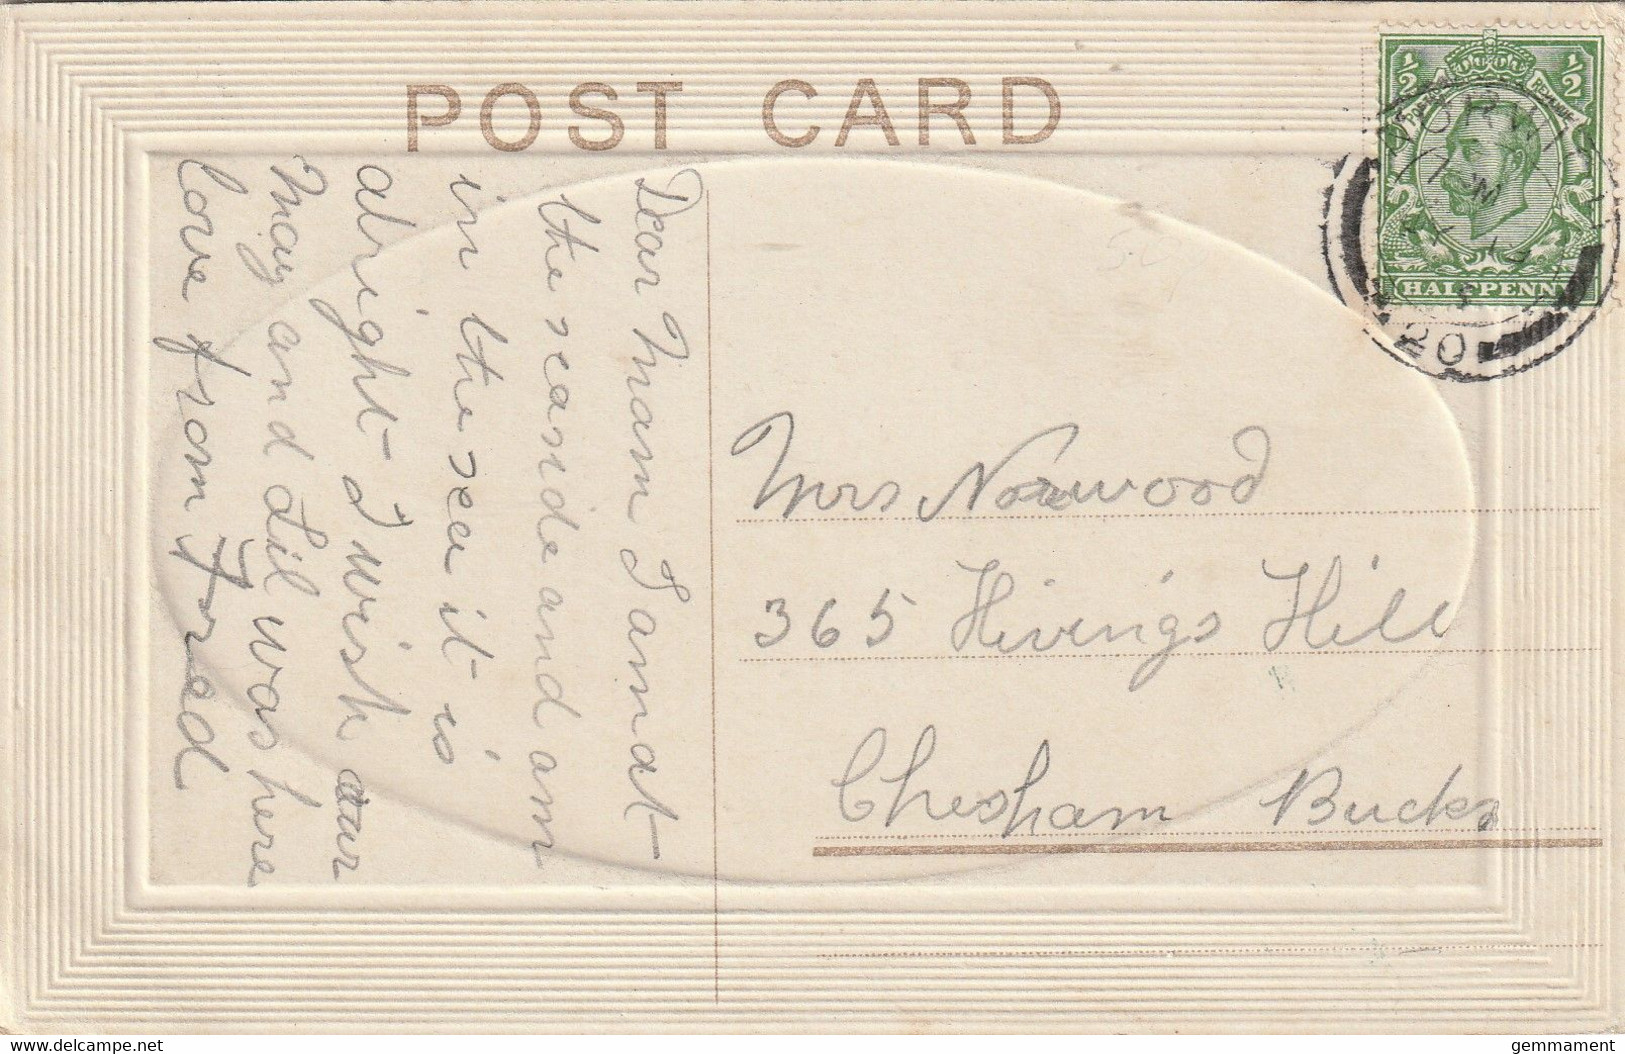 POST CARD
Dear Mam I am at
the seaside and am
in the sea it is
alright I wish our
May and Lil was here
love from Fred
Mrs Norwood
365 Hivings Hill
Chesham Bucks
½ ½
POSTAGE REVENUE
HALFPENNY
NORWICH
20
delcampe.net
gemmament